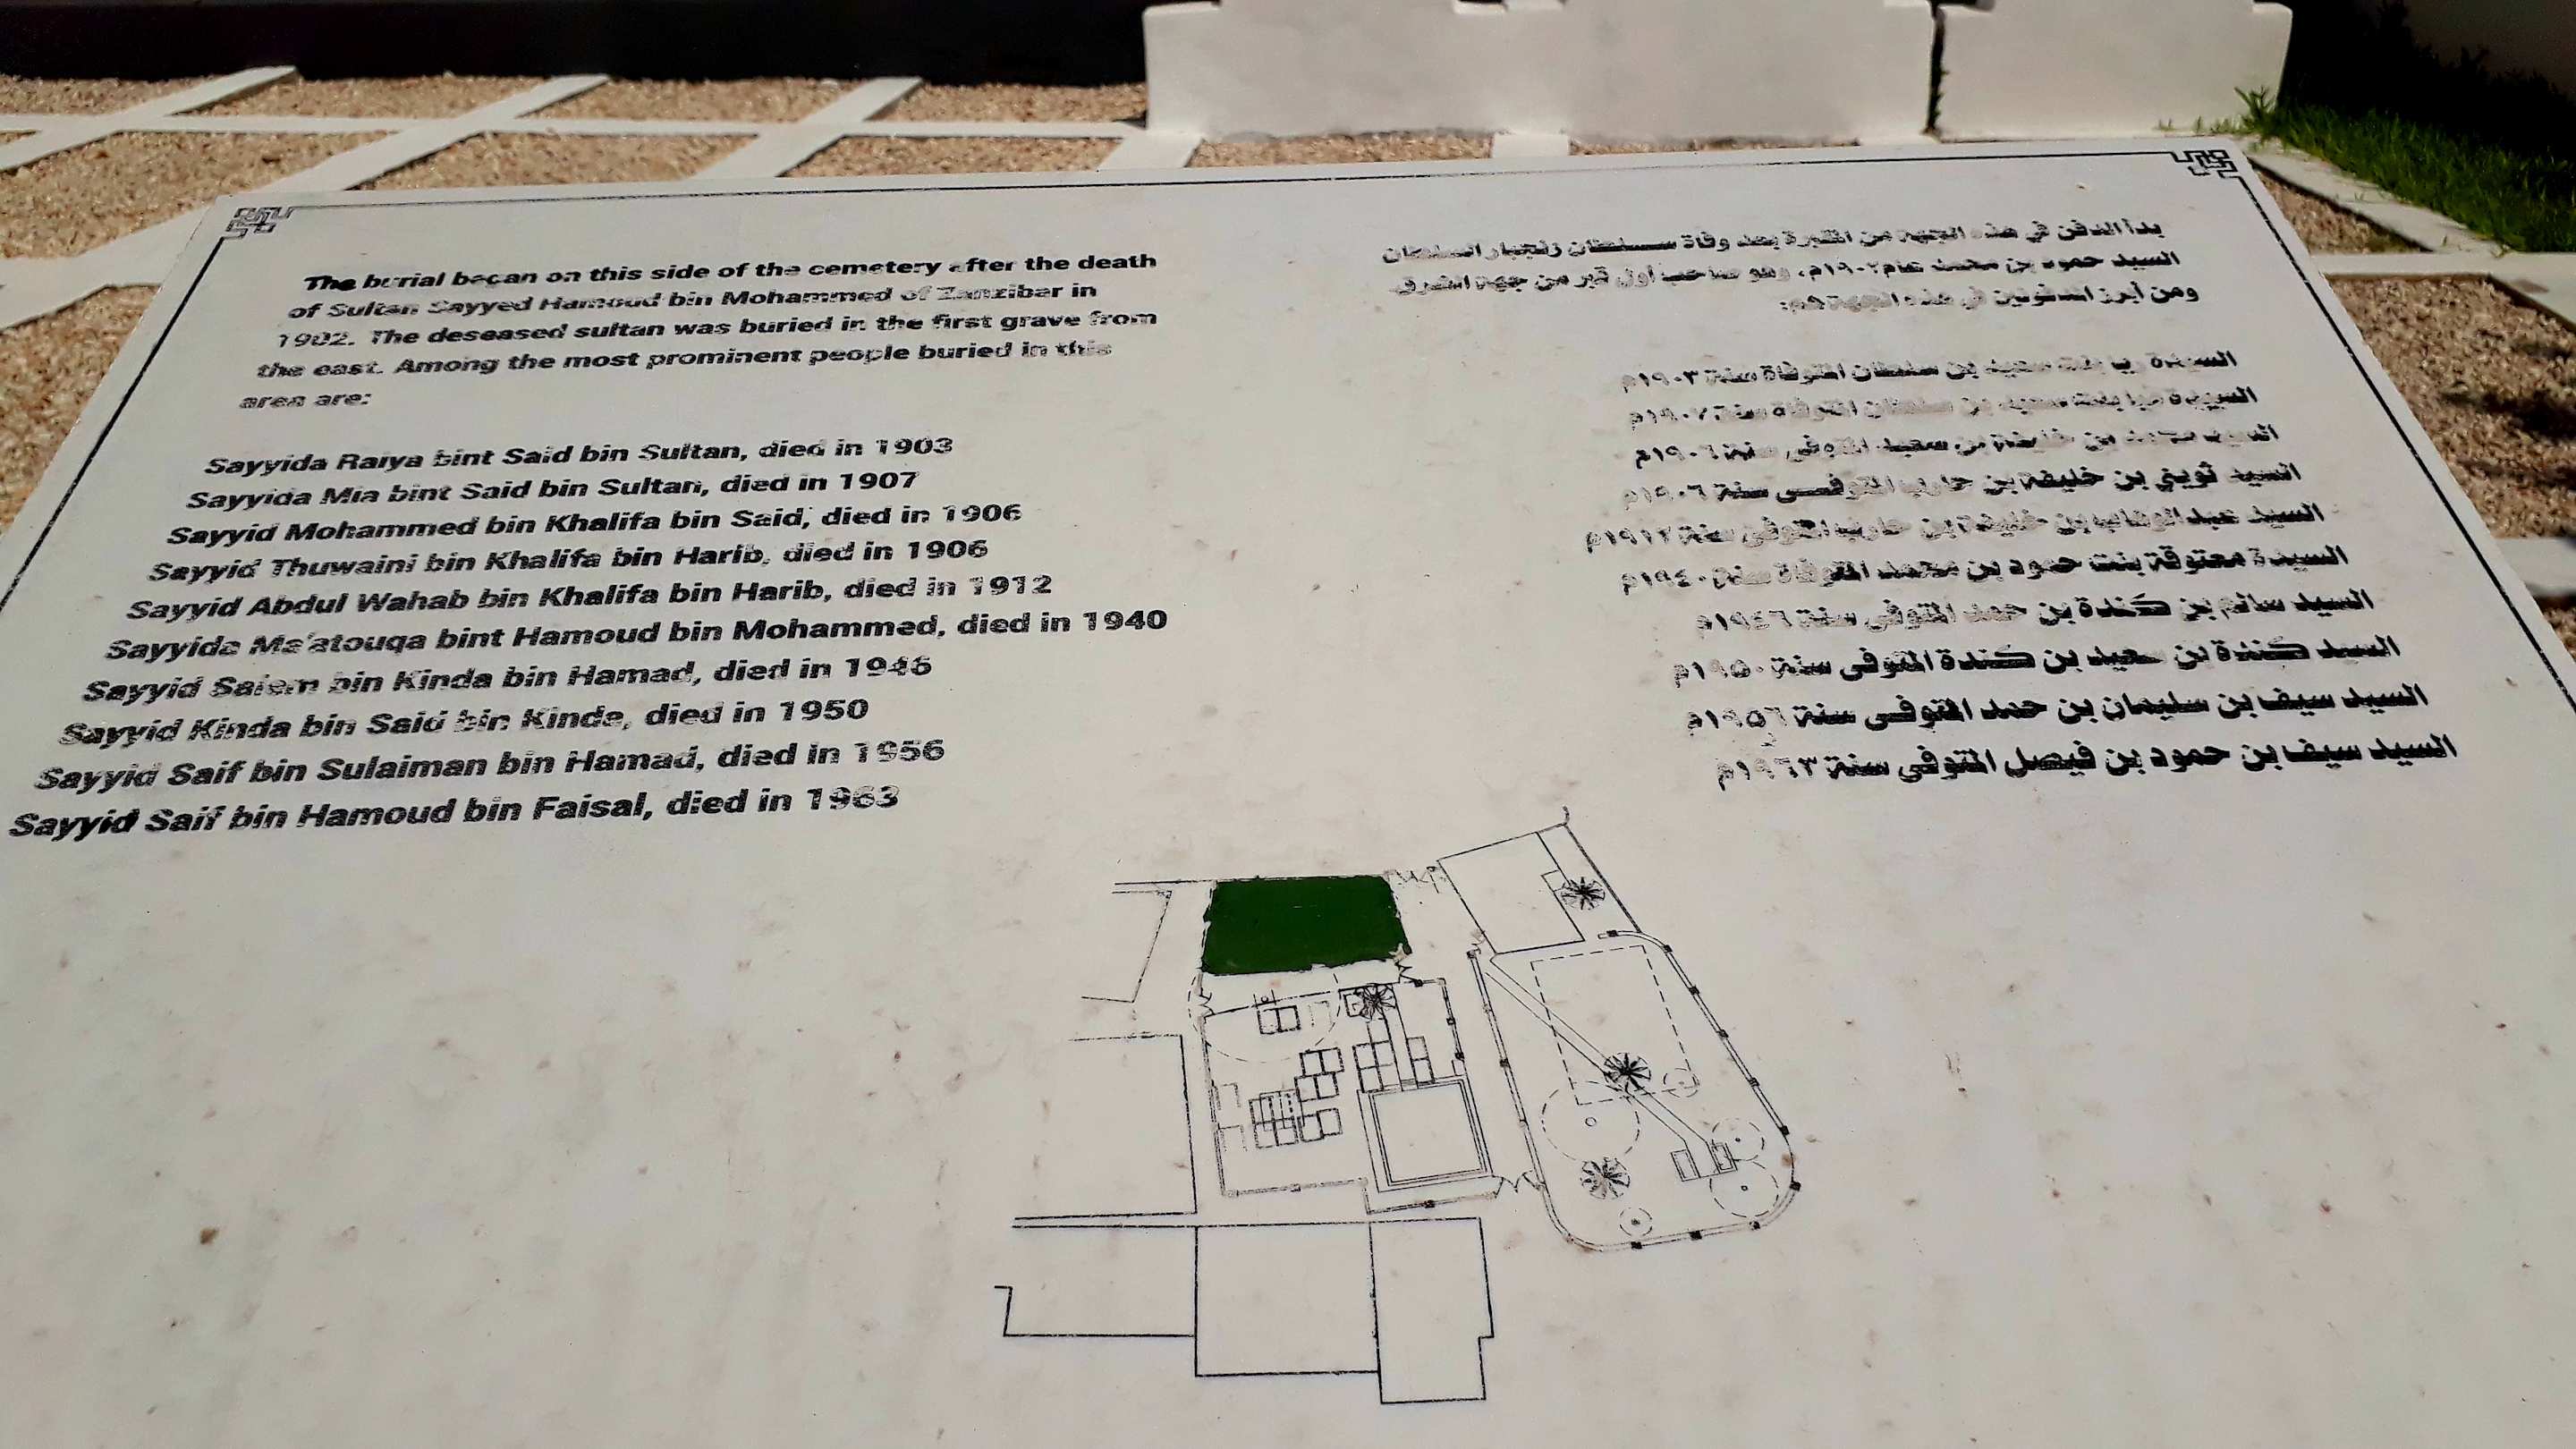 The burial began on this side of the cemetery after the death
of Sultan Sayyed Hamoud bin Mohammed of Zanzibar in
1902. The deseased sultan was buried in the first grave from
the east. Among the most prominent people buried in this
area are:
Sayyida Raiya bint Said bin Sultan, died in 1903
Sayyida Mia bint Said bin Sultan, died in 1907
Sayyid Mohammed bin Khalifa bin Said, died in 1906
Sayyid Thuwaini bin Khalifa bin Harib, died in 1906
Sayyid Abdul Wahab bin Khalifa bin Harib, died in 1912
Sayyida Ma'atouqa bint Hamoud bin Mohammed, died in 1940
Sayyid Salem bin Kinda bin Hamad, died in 1946
Sayyid Kinda bin Said bin Kinda, died in 1950
Sayyid Saif bin Sulaiman bin Hamad, died in 1956
Sayyid Saif bin Hamoud bin Faisal, died in 1963
بدأ الدفن في هذه الجهة من المقبرة بعد وفاة سلطان زنجبار السلطان
السيد حمود بن محمد عام ١٩٠٢م، وهو صاحب أول قبر من جهة الشرق
ومن أبرز المدفونين في هذه الجهة هم:
السيدة ريا بنت سعيد بن سلطان المتوفاة سنة ١٩٠٣م
السيدة ميا بنت سعيد بن سلطان المتوفاة سنة ١٩٠٧م
السيد محمد بن خليفة بن سعيد المتوفى سنة ١٩٠٦م
السيد ثويني بن خليفة بن حارب المتوفى سنة ١٩٠٦م
السيد عبد الوهاب بن خليفة بن حارب المتوفى سنة ١٩١٢م
السيدة معتوقة بنت حمود بن محمد المتوفاة سنة ١٩٤٠م
السيد سالم بن كندة بن حمد المتوفى سنة ١٩٤٦م
السيد كندة بن سعيد بن كندة المتوفى سنة ١٩٥٠م
السيد سيف بن سليمان بن حمد المتوفى سنة ١٩٥٦م
السيد سيف بن حمود بن فيصل المتوفى سنة ١٩٦٣م